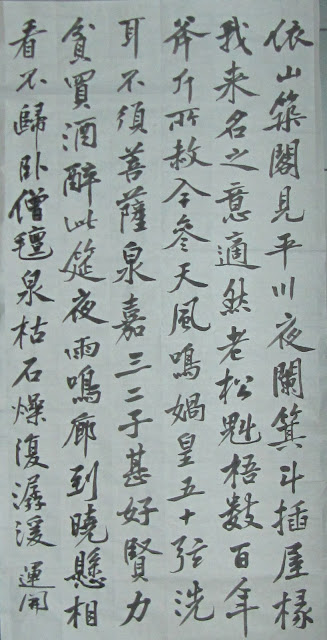 依山築閣見平川夜闌箕斗插屋椽
我来名之意適然老松魁梧數百年
斧斤所赦今參天風鳴媧皇五十弦洗
耳不須菩薩泉嘉三二子甚好賢力
貧買酒醉此筵夜雨鳴廊到曉懸相
看不歸臥僧氈泉枯石燥復潺湲 運開